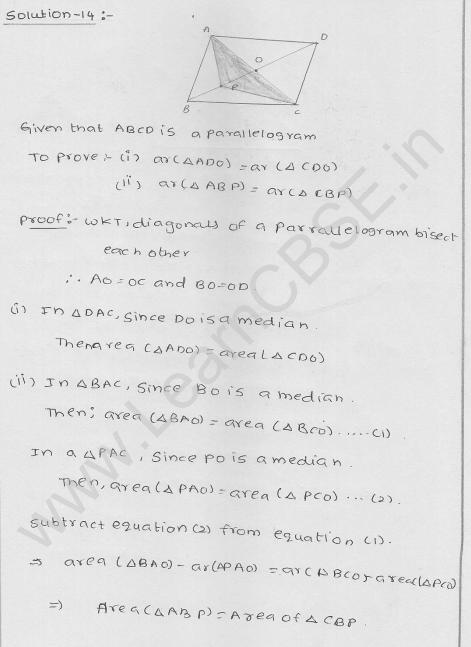 Solution-14 :-
A
D
O
P
B
C
Given that ABCD is a parallelogram
To prove :- (i) ar(△ADO) = ar(△CDO)
(ii) ar(△ABP) = ar(△CBP)
Proof:- WKT, diagonals of a parrallelogram bisect
each other
∴ AO = OC and BO = OD
(i) In △DAC, since DO is a median.
Then area (△ADO) = area (△CDO)
(ii) In △BAC, since BO is a median.
Then; area (△BAO) = area (△BCO) ..... (1)
In a △PAC, since PO is a median.
Then, area (△PAO) = area (△PCO) ... (2).
Subtract equation (2) from equation (1).
⇒ area (△BAO) - ar(△PAO) = ar(△BCO) - area(△PCO)
⇒ Area (△ABP) = Area of △CBP.
www.LearnCBSE.in